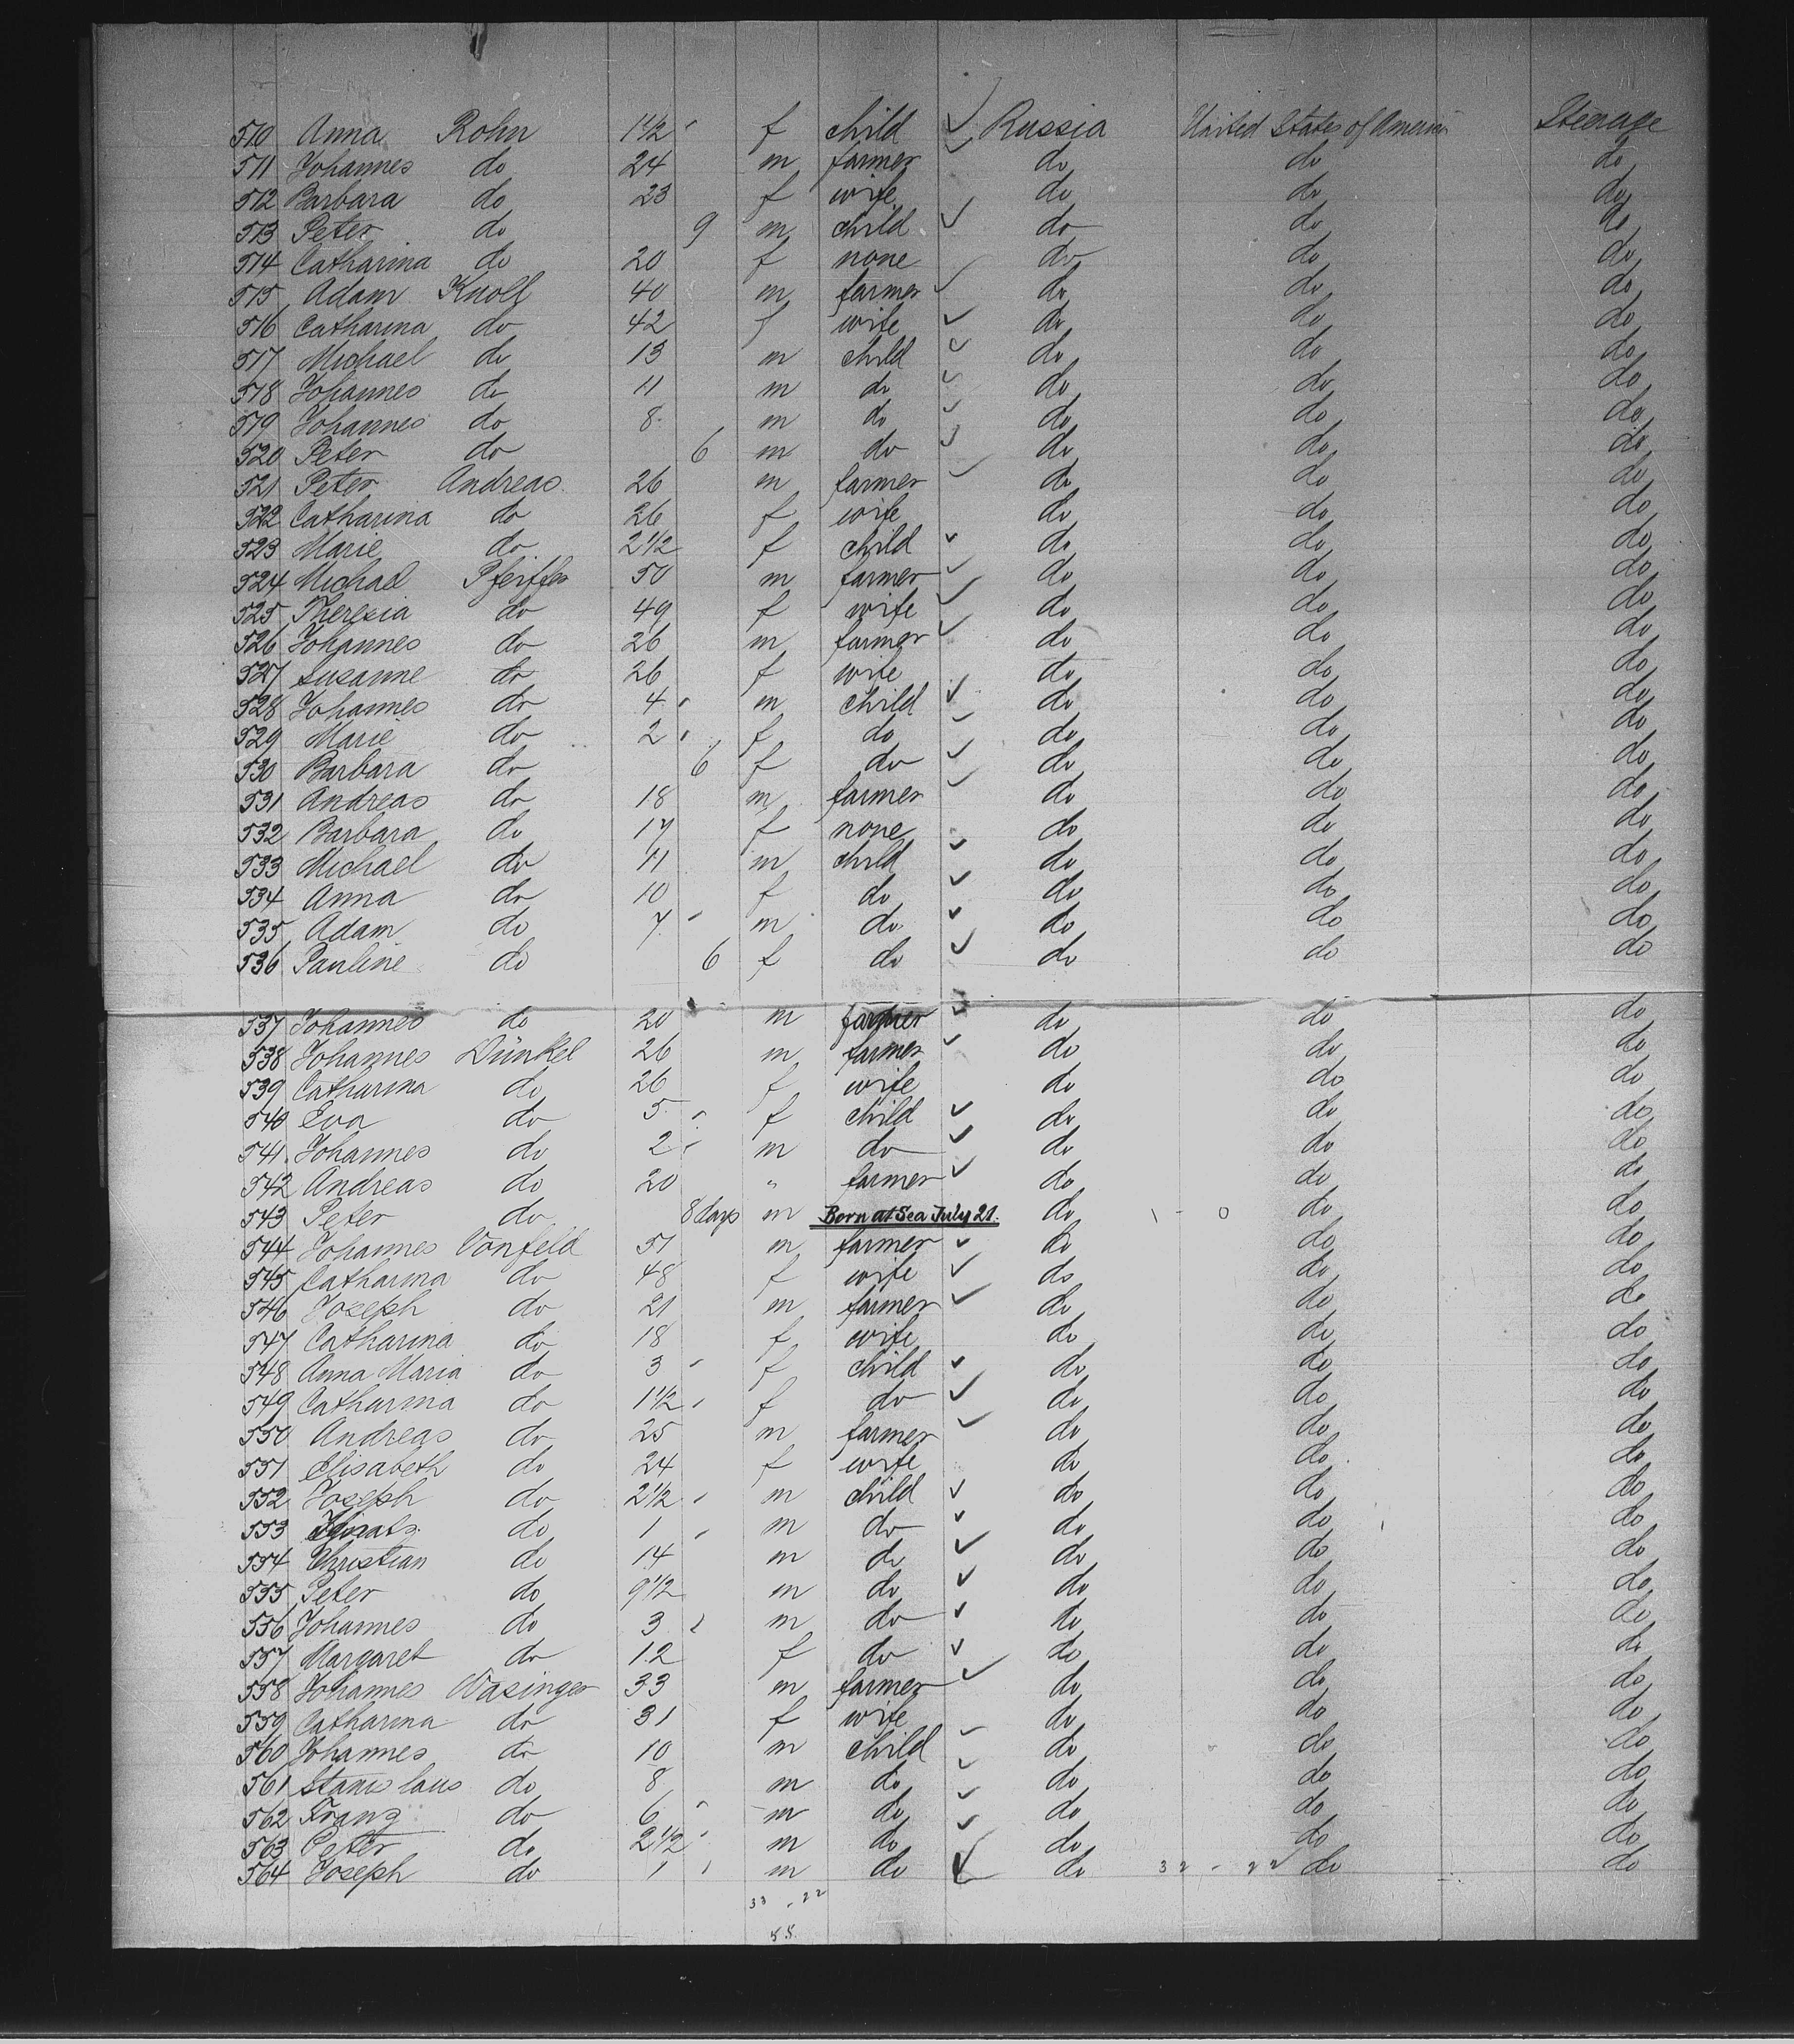 510 Anna Rohn 1 1/2 f child ✓ Russia United States of America Steerage
511 Johannes do 24 m farmer ✓ do do do
512 Barbara do 23 f wife do do do
513 Peter do 9 m child ✓ do do do
514 Catharina do 20 f none do do do
515 Adam Knoll 40 m farmer ✓ do do do
516 Catharina do 42 f wife ✓ do do do
517 Michael do 13 m child ✓ do do do
518 Johannes do 11 m do ✓ do do do
519 Johannes do 8 m do ✓ do do do
520 Peter do 6 m do ✓ do do do
521 Peter Andreas 26 m farmer ✓ do do do
522 Catharina do 26 f wife do do do
523 Marie do 2 1/2 f child ✓ do do do
524 Michael Pfeiffer 50 m farmer ✓ do do do
525 Theresia do 49 f wife ✓ do do do
526 Johannes do 26 m farmer ✓ do do do
527 Susanne do 26 f wife do do do
528 Johannes do 4 m child ✓ do do do
529 Marie do 2 f do ✓ do do do
530 Barbara do 6 f do ✓ do do do
531 Andreas do 18 m farmer ✓ do do do
532 Barbara do 17 f none do do do
533 Michael do 11 m child ✓ do do do
534 Anna do 10 f do ✓ do do do
535 Adam do 7 m do ✓ do do do
536 Pauline do 6 f do ✓ do do do
537 Johannes do 20 m farmer ✓ do do do
538 Johannes Dünkel 26 m farmer ✓ do do do
539 Catharina do 26 f wife do do do
540 Eva do 5 f child ✓ do do do
541 Johannes do 2 m do ✓ do do do
542 Andreas do 20 " farmer ✓ do do do
543 Peter do 8 days m Born at Sea July 21. do 1 - 0 do do
544 Johannes Vonfeld 51 m farmer ✓ do do do
545 Catharina do 48 f wife ✓ do do do
546 Joseph do 21 m farmer ✓ do do do
547 Catharina do 18 f wife do do do
548 Anna Maria do 3 f child ✓ do do do
549 Catharina do 1 1/2 f do ✓ do do do
550 Andreas do 25 m farmer ✓ do do do
551 Elisabeth do 24 f wife do do do
552 Joseph do 2 1/2 m child ✓ do do do
553 do 1 m do ✓ do do do
554 Christian do 14 m do ✓ do do do
555 Peter do 9 1/2 m do ✓ do do do
556 Johannes do 3 m do ✓ do do do
557 Margaret do 12 f do ✓ do do do
558 Johannes Wasinger 33 m farmer ✓ do do do
559 Catharina do 31 f wife do do do
560 Johannes do 10 m child ✓ do do do
561 Stanislaus do 8 m do ✓ do do do
562 Franz do 6 m do ✓ do do do
563 Peter do 2 1/2 m do ✓ do do do
564 Joseph do 1 m do ✓ do 32 - 22 do do
33 - 22
55